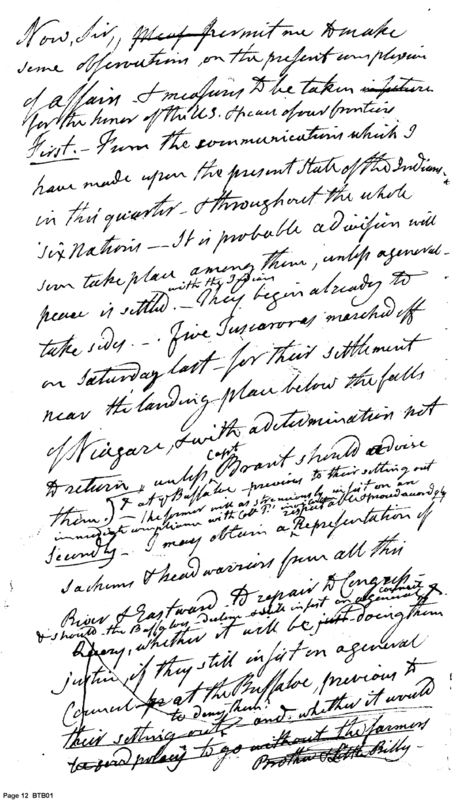 Now, Sir, permit me to make
some observations on the present complexion
of affairs & measures to be taken in future
for the honor of the U.S. & peace of our frontiers
First. - From the communications which I
have made upon the present State of the Indians
in this quarter - & throughout the whole
Six Nations -- It is probable a division will
soon take place among them, unless a general
peace is settled. - with the Indians They begin already to
take sides. -. Five Tuscaroras marched off
on Saturday last - for their settlement
near the landing place below the falls
of Niagara, & with a determination not
to return unless Capt Brant should advise
them. & at ye Buffaloe previous to their setting out
- The former will as strenuously insist on an
immediate compliance with Col. P's invitation
Secondly - I may obtain a respectable & proud Representation of
Sachems & head warriors from all this
River & Eastward to repair to Congress -
& should the Buffaloe still insist on a general council
Query, whether it will be just doing them
justice, if they still insist on a general
Council at the Buffaloe, previous to
their setting out to deny them and whether it would
be good policy to go without the farmers
Brother & Little Billy -
Page 12 BTB01